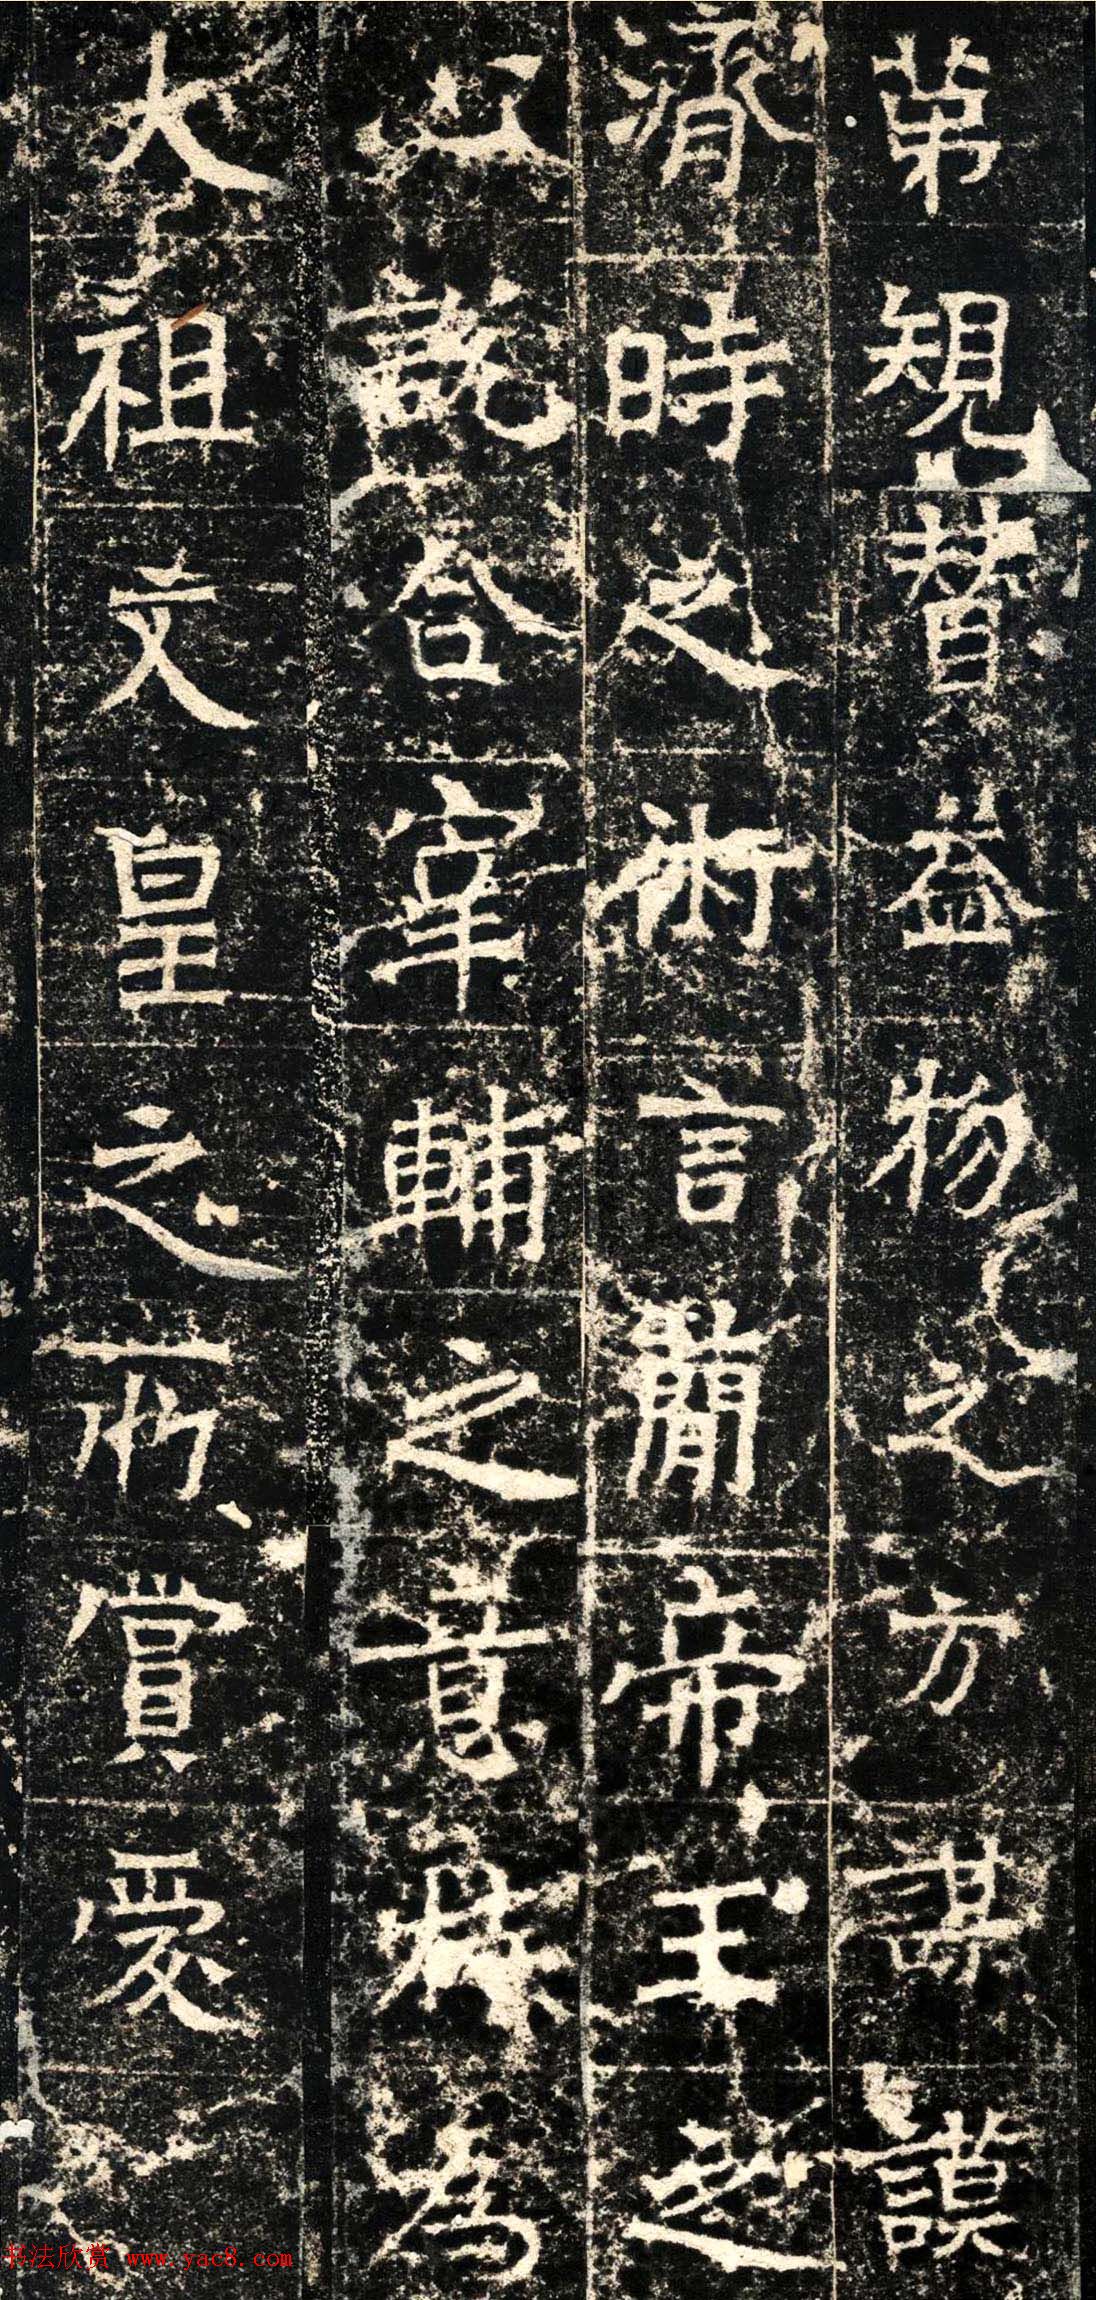 苐規替益物之方謀謨
濟時之術言簡帝王之
心說合宰輔之意故為
太祖文皇之所賞愛
书法欣赏 www.yac8.com